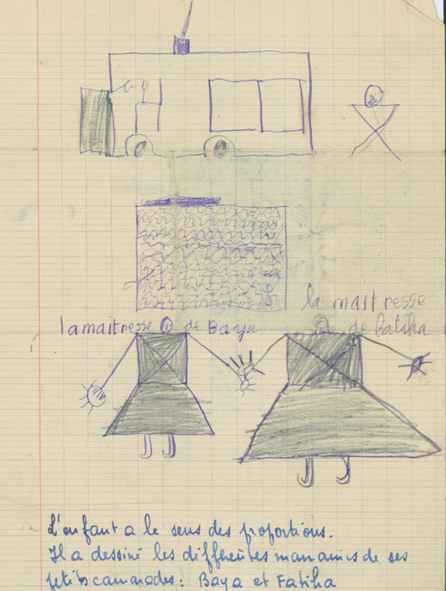 la maitresse
lamaitresse de Baya de Fatiha
L'enfant a le sens des proportions.
Il a dessiné les différentes mamans de ses
petits camarades : Baya et Fatiha